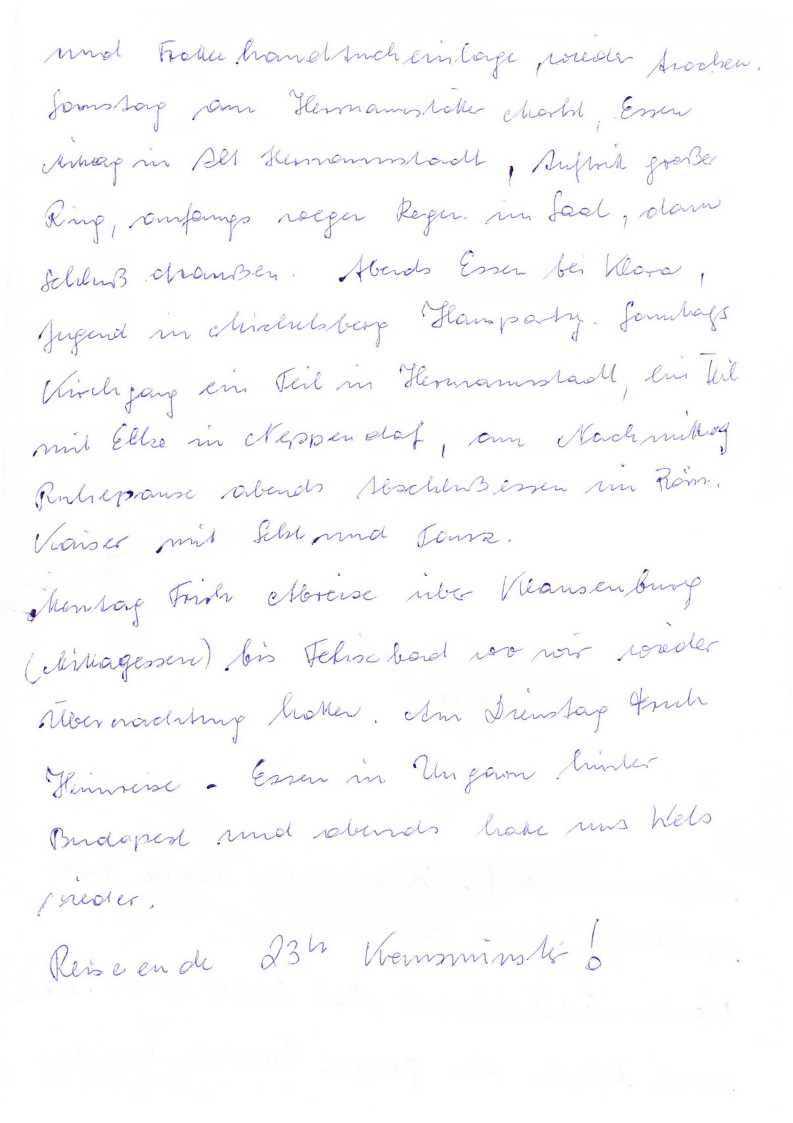 und Frotteehandtucheinlage wieder trocken.
Samstag am Hermannstätter Markt, Essen
Mittag in Alt Hermannstadt, Auftritt großer
Ring, anfangs wegen Regen im Saal, dann
Schluß draußen. Abends Essen bei Klara,
Jugend in Michelsberg Hausparty. Sonntags
Kirchgang ein Teil in Hermannstadt, ein Teil
mit Elke in Neppendorf, am Nachmittag
Ruhepause abends Abschlußessen im Röm.
Kaiser mit Sekt und Tanz.
Montag Früh Abreise über Klausenburg
(Mittagessen) bis Felixbad wo wir wieder
Übernachtung hatten. Am Dienstag Früh
Heimreise - Essen in Ungarn hinter
Budapest und abends hatte uns Wels
wieder.
Reiseende 23h Kremsmünster!